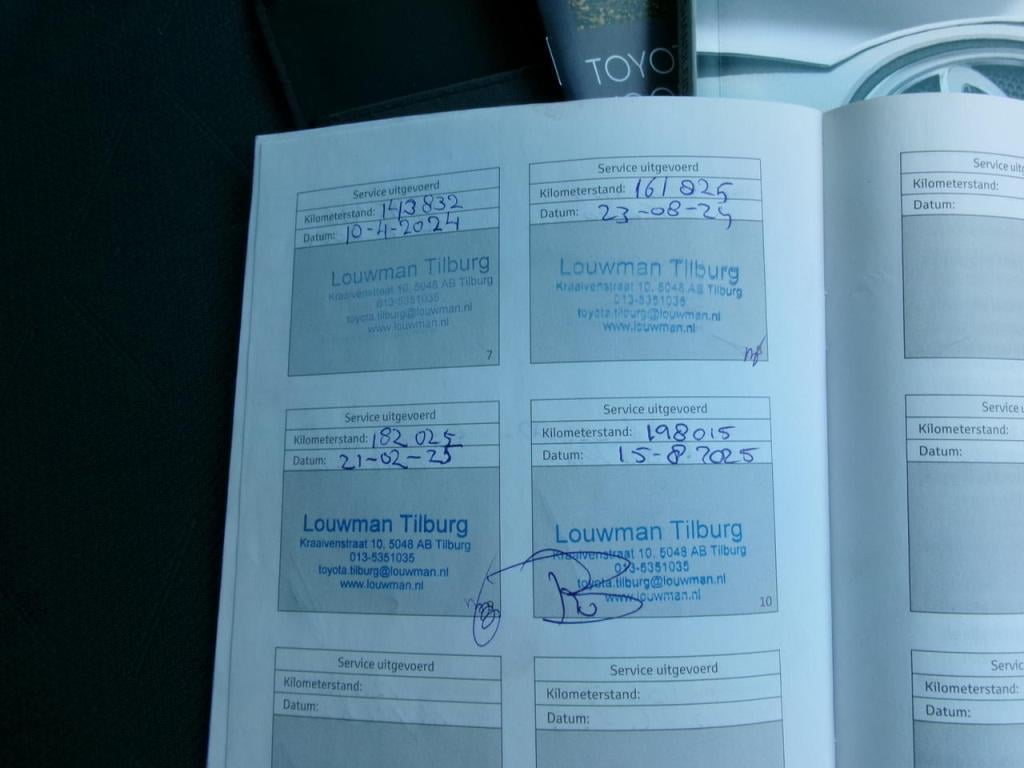 TOYO
Service uitgevoerd
Kilometerstand: 143832
Datum: 10-4-2024
Louwman Tilburg
Kraaivenstraat 10, 5048 AB Tilburg
013-5351035
toyota.tilburg@louwman.nl
www.louwman.nl
7
Service uitgevoerd
Kilometerstand: 161 825
Datum: 23-08-24
Louwman Tilburg
Kraaivenstraat 10, 5048 AB Tilburg
013-5351035
toyota.tilburg@louwman.nl
www.louwman.nl
Service uitgevoerd
Kilometerstand: 182 025
Datum: 21-02-25
Louwman Tilburg
Kraaivenstraat 10, 5048 AB Tilburg
013-5351035
toyota.tilburg@louwman.nl
www.louwman.nl
Service uitgevoerd
Kilometerstand: 198015
Datum: 15-8-2025
Louwman Tilburg
Kraaivenstraat 10, 5048 AB Tilburg
013-5351035
toyota.tilburg@louwman.nl
www.louwman.nl
10
Service uitgevoerd
Kilometerstand:
Datum:
Service uitgevoerd
Kilometerstand:
Datum:
Service uitg
Kilometerstand:
Datum:
Service u
Kilometerstand:
Datum:
Servic
Kilometerstand:
Datum: